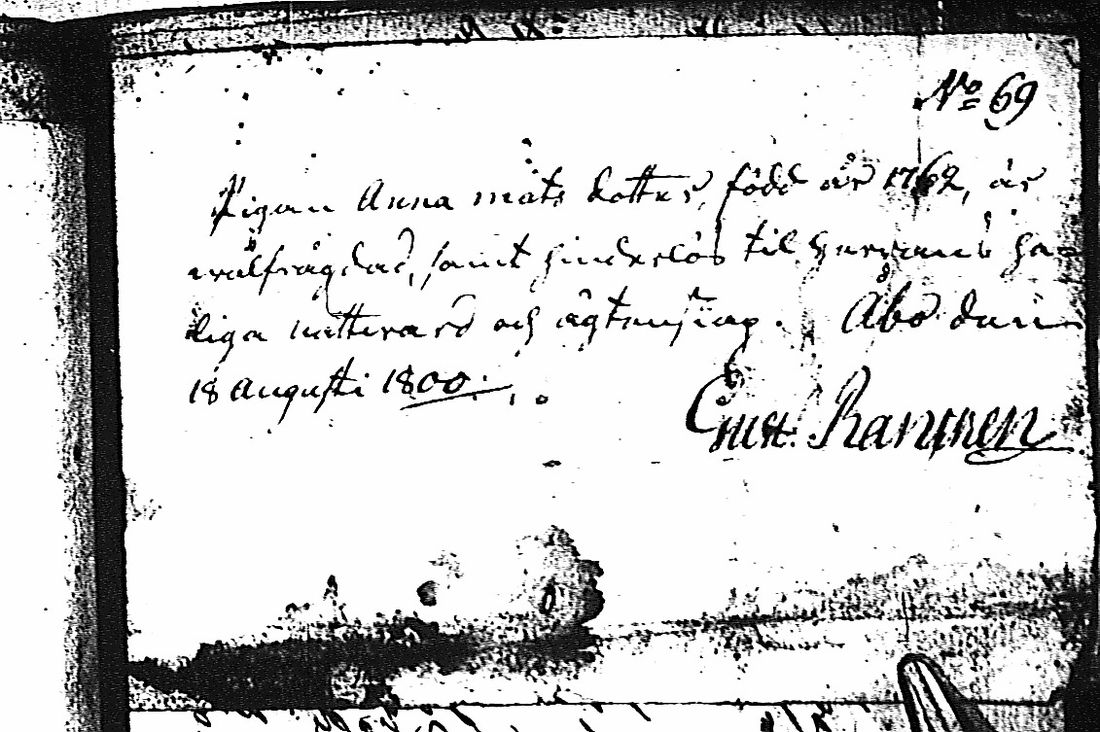 No 69
Pigan Anna mats dotter, född år 1762, är
wälfrägdad, samt hinderlös til Herrans he-
liga nattward och ägtenskap. Åbo den
18 augusti 1800.
Gust. Rancken